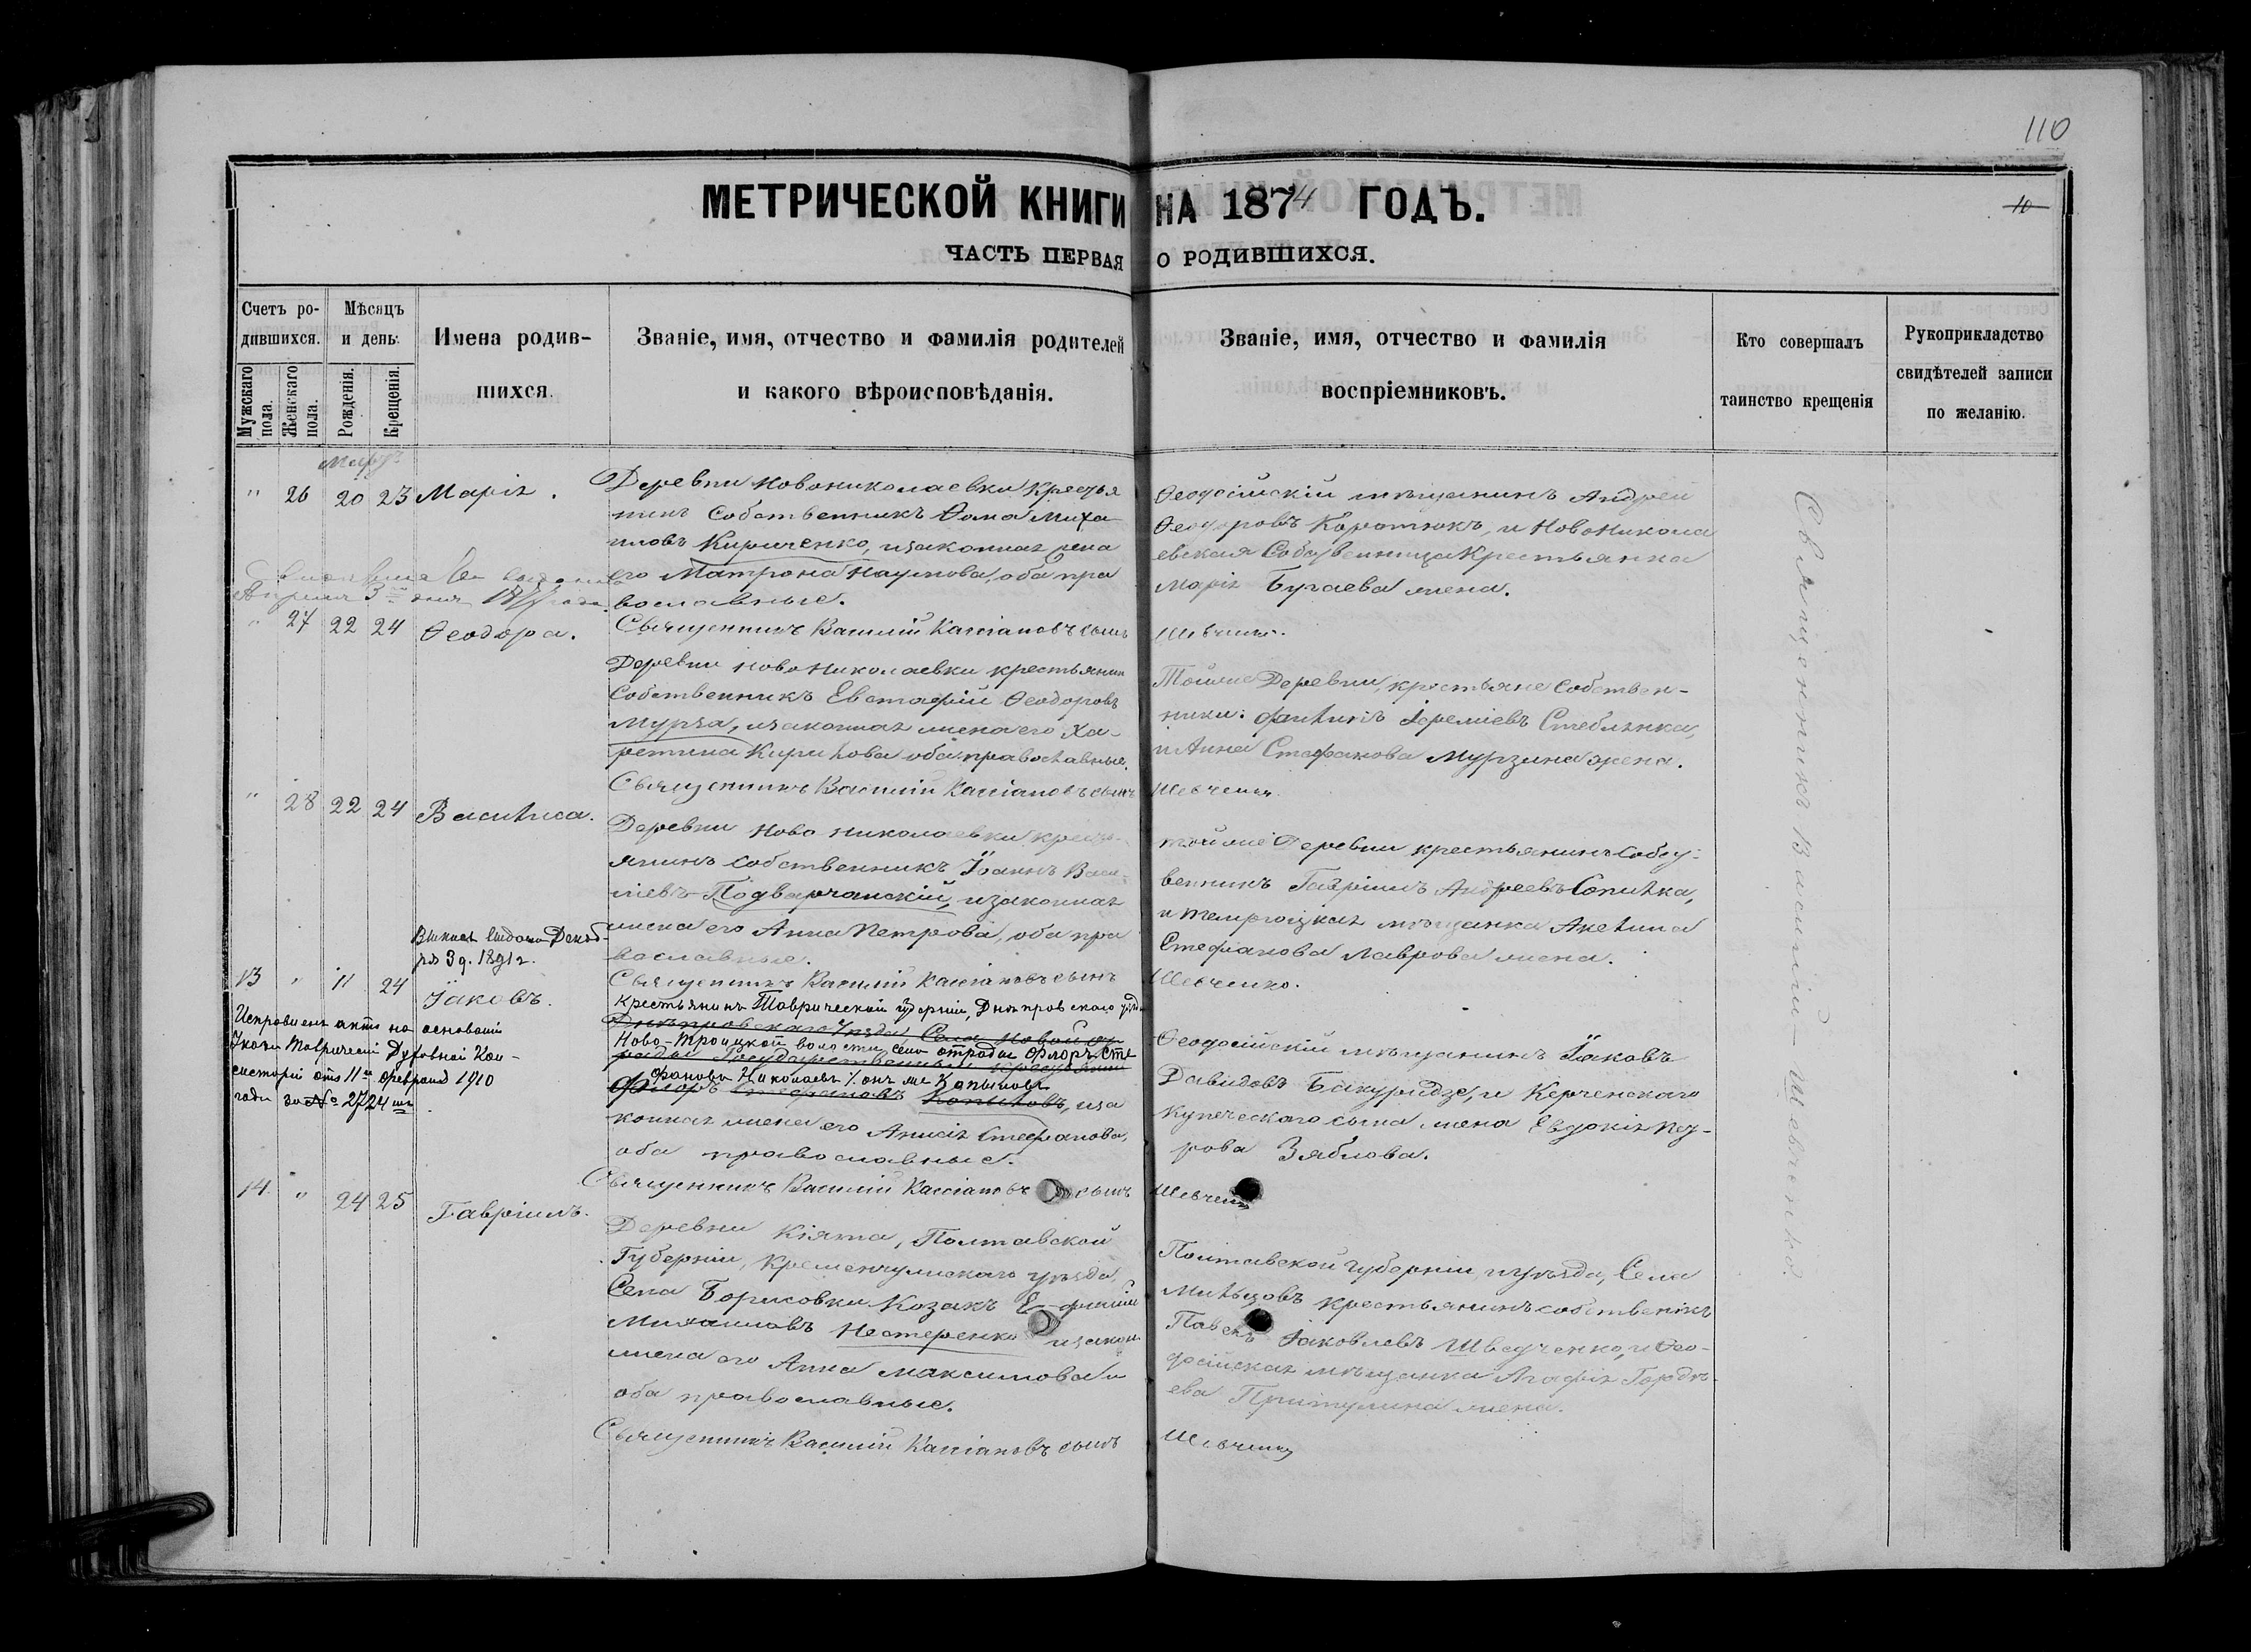 110
МЕТРИЧЕСКОЙ КНИГИ НА 1874 ГОДЪ.
10
ЧАСТЬ ПЕРВАЯ О РОДИВШИХСЯ.
Счетъ ро-
дившихся.
Мужскаго пола.
Женскаго пола.
Мѣсяцъ
и день.
Рожденія.
Крещенія.
Имена родив-
шихся.
Званіе, имя, отчество и фамилія родителей
и какого вѣроисповѣданія.
Званіе, имя, отчество и фамилія
воспріемниковъ.
Кто совершалъ
таинство крещенія
Рукоприкладство
свидѣтелей записи
по желанію.
Мартъ
" 26 20 23 Марія.
Деревни Новониколаевки Крестья
нинъ Собственникъ Ѳома Миха
иловъ Кириченко, и законная жена
его Матрона Наумова, оба пра
вославные.
Ѳеодосійскій мѣщанинъ Андрей
Ѳеодоровъ Коротюкъ, и Новоникола
евская Собственница Крестьянка
Марія Бугаева жена.
Апреля 3 дня
Священникъ Василій Кассіановъ сынъ Шевченко.
" 27 22 24 Ѳеодора.
Деревни Ново Николаевки крестьянин
Собственникъ Евстафій Ѳеодоровъ
Мурза, и законная жена его Ха-
ретина Кирилова оба православные.
Тойже Деревни, крестьяне Собствен-
ники: Филипъ Іереміевъ Стеблянка,
и Анна Стефанова Мурзина жена.
Священникъ Василій Кассіановъ сынъ Шевченко
" 28 22 24 Василиса.
Деревни Ново Николаевки крест-
янинъ собственникъ Іоаннъ Васи-
ліевъ Подварчанскій, и законная
жена его Анна Петрова, оба пра
вославные.
тойже Деревни крестьянинъ Собст-
венникъ Гавріилъ Андреевъ Сопилка,
и мѣщанка Акелина
Стефанова Лаврова жена.
Выпись выдана Декаб-
ря 3 д. 1891 г.
Священникъ Василій Кассіановъ сынъ Шевченко.
13 " 11 24 Іаковъ.
Исправленъ актъ на основаніи
Указа Таврической Духовной Кон-
систоріи отъ 11го февраля 1910
года за № 2724мъ.
Крестьянинъ Таврической губерніи, Днѣпровского уѣзда
Днѣпровскаго Уѣзда, Села Новой От
Ново-Троицкой волости, села отрадас Флоръ Сте
рады Государственный крестьянин
фановъ Николаевъ / онъ же Копыловъ
Флоръ Стефановъ Копыловъ, и за
конная жена его Анисія Стефанова,
оба православные.
Ѳеодосійскій мѣщанинъ Іаковъ
Давидовъ Бакуридзе, и Керченскаго
Купеческаго сына жена Евдокія Пет-
рова Зяблова.
Священникъ Василій Кассіановъ сынъ Шевченко
14 " 24 25 Гавріилъ.
Деревни Кіята, Полтавской
Губерніи, Кременчугскаго уѣзда,
Села Борисовки Козакъ
Михаиловъ Нестеренко и законн
жена его Анна Максимова и
оба православные.
Полтавской губерніи, и уѣзда, Села
Мильцовъ крестьянинъ собственникъ
Павелъ Іаковлевъ Шведченко, и Ѳео-
досійская мѣщанка Агафія Гордѣ-
ева Притулина жена.
Священникъ Василій Кассіановъ сынъ Шевченко
Священникъ Василій Шевченко.